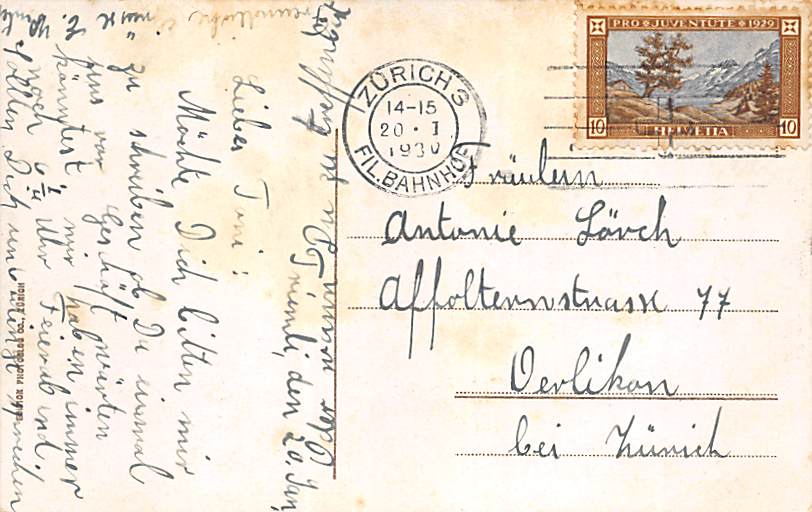 PRO JUVENTUTE 1929
10 HELVETIA 10
ZÜRICH 3
14-15
20. I
1930
FIL. BAHNHOF
Fräulein
Antonie Lörch
Affolternstrasse 77
Oerlikon
bei Zürich
Triemli, den 20. Jan.
Lieber Toni!
Möchte Dich bitten mir
zu schreiben ob Du einmal
vor Geschäft warten
könntest. mir haben immer
noch 6 1/4 Uhr Feierabend.
Sollten Dich unbedingt sprechen
PHOTOGLOB CO., ZÜRICH